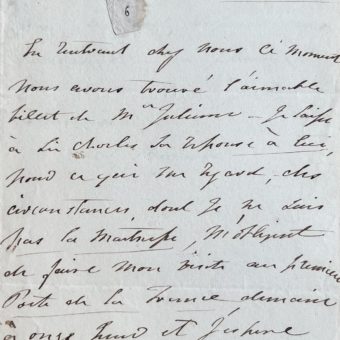 6
En rentrant chez nous ce moment
nous avons trouvé l'aimable
billet de Mr Julienne – Je laisse
à Sir Charles sa réponse à lui,
pour ce qui me regard, des
circonstances, dont je ne suis
pas la Maitresse, m'obligent
de faire mon visite au premier
Poëte de la France demain
à onze heures et j'espère